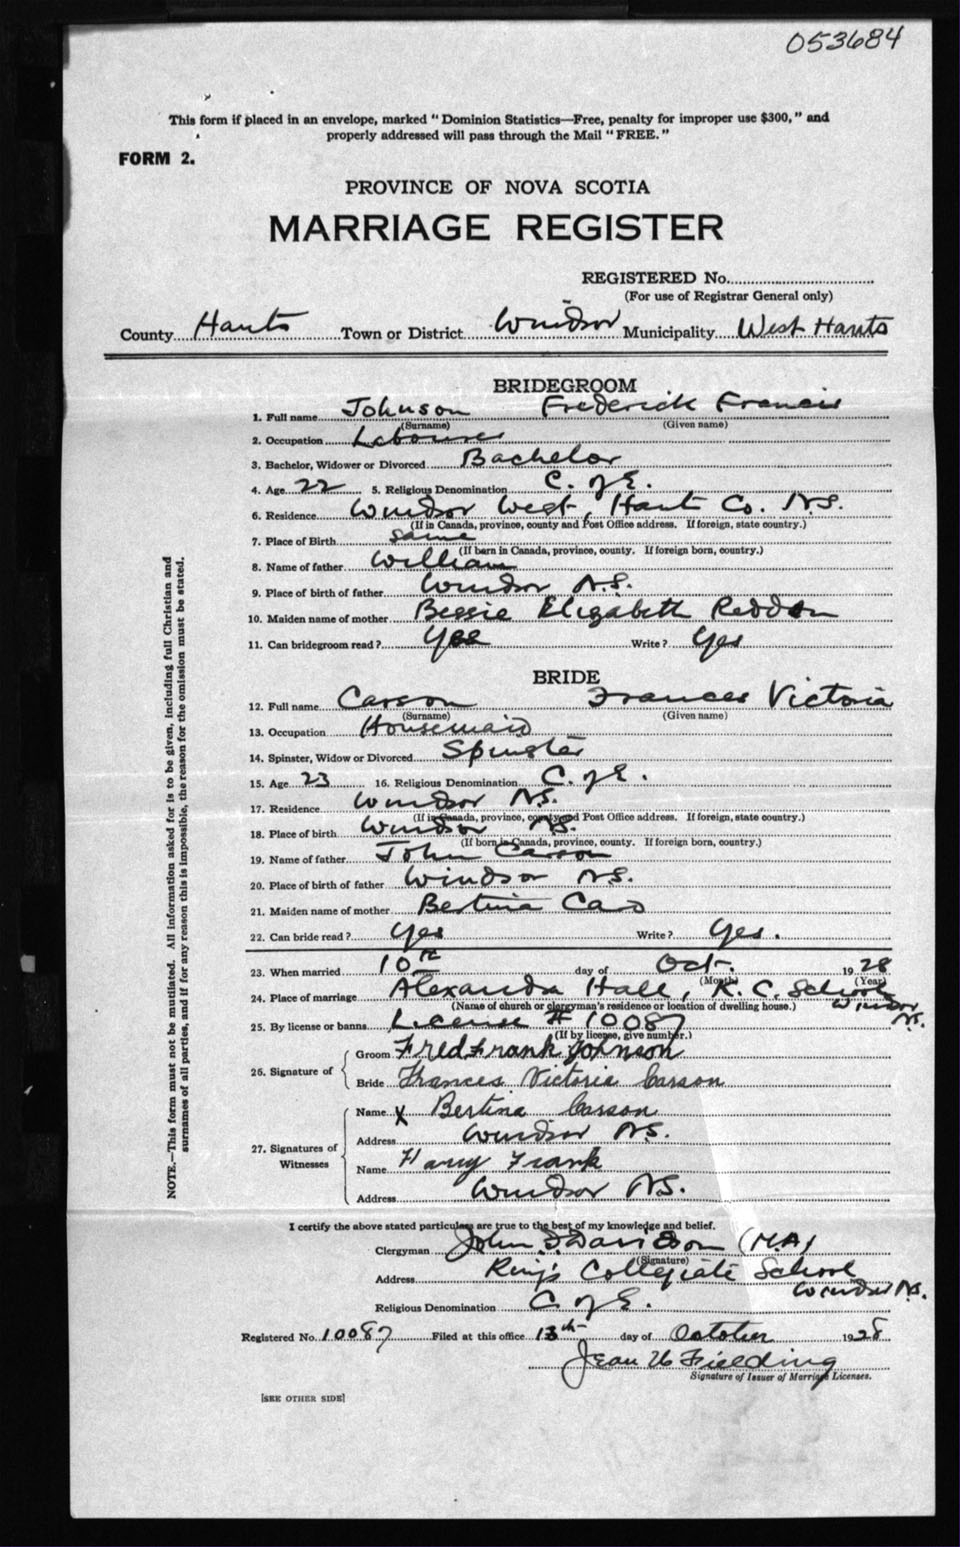 053684
This form if placed in an envelope, marked "Dominion Statistics—Free, penalty for improper use $300," and
properly addressed will pass through the Mail "FREE."
FORM 2.
PROVINCE OF NOVA SCOTIA
MARRIAGE REGISTER
REGISTERED No.
(For use of Registrar General only)
County Hants Town or District Windsor Municipality West Hants
BRIDEGROOM
1. Full name Johnson Frederick Francis
(Surname) (Given name)
2. Occupation Labourer
3. Bachelor, Widower or Divorced Bachelor
4. Age 22 5. Religious Denomination C. of E.
6. Residence Windsor West, Hant Co. N.S.
(If in Canada, province, county and Post Office address. If foreign, state country.)
7. Place of Birth same
(If born in Canada, province, county. If foreign born, country.)
8. Name of father William
9. Place of birth of father Windsor N.S.
10. Maiden name of mother Bessie Elizabeth Reddon
11. Can bridegroom read? Yes Write? Yes
BRIDE
12. Full name Carson Frances Victoria
(Surname) (Given name)
13. Occupation Housemaid
14. Spinster, Widow or Divorced Spinster
15. Age 23 16. Religious Denomination C. of E.
17. Residence Windsor N.S.
(If in Canada, province, county and Post Office address. If foreign, state country.)
18. Place of birth Windsor N.S.
(If born in Canada, province, county. If foreign born, country.)
19. Name of father John Carson
20. Place of birth of father Windsor N.S.
21. Maiden name of mother Bertina
22. Can bride read? Yes Write? Yes.
23. When married 10th day of Oct. 1928
(Month) (Year)
24. Place of marriage Alexandra Hall, K. C. School
Windsor
N.S.
(Name of church or clergyman's residence or location of dwelling house.)
25. By license or banns License # 10087
(If by license, give number.)
26. Signature of
Groom Fred Frank Johnson
Bride Frances Victoria Carson
27. Signatures of
Witnesses
Name X Bertina Carson
Address Windsor N.S.
Name Harry Frank
Address Windsor N.S.
I certify the above stated particulars are true to the best of my knowledge and belief.
Clergyman John Davidson (M.A)
(Signature)
Address King's Collegiate School
Windsor N.S.
Religious Denomination C. of E.
Registered No. 10087 Filed at this office 13th day of October 1928
Jean Fielding
Signature of Issuer of Marriage Licenses.
[SEE OTHER SIDE]
NOTE.—This form must not be mutilated. All information asked for is to be given, including full Christian and
surnames of all parties, and if for any reason this is impossible, the reason for the omission must be stated.